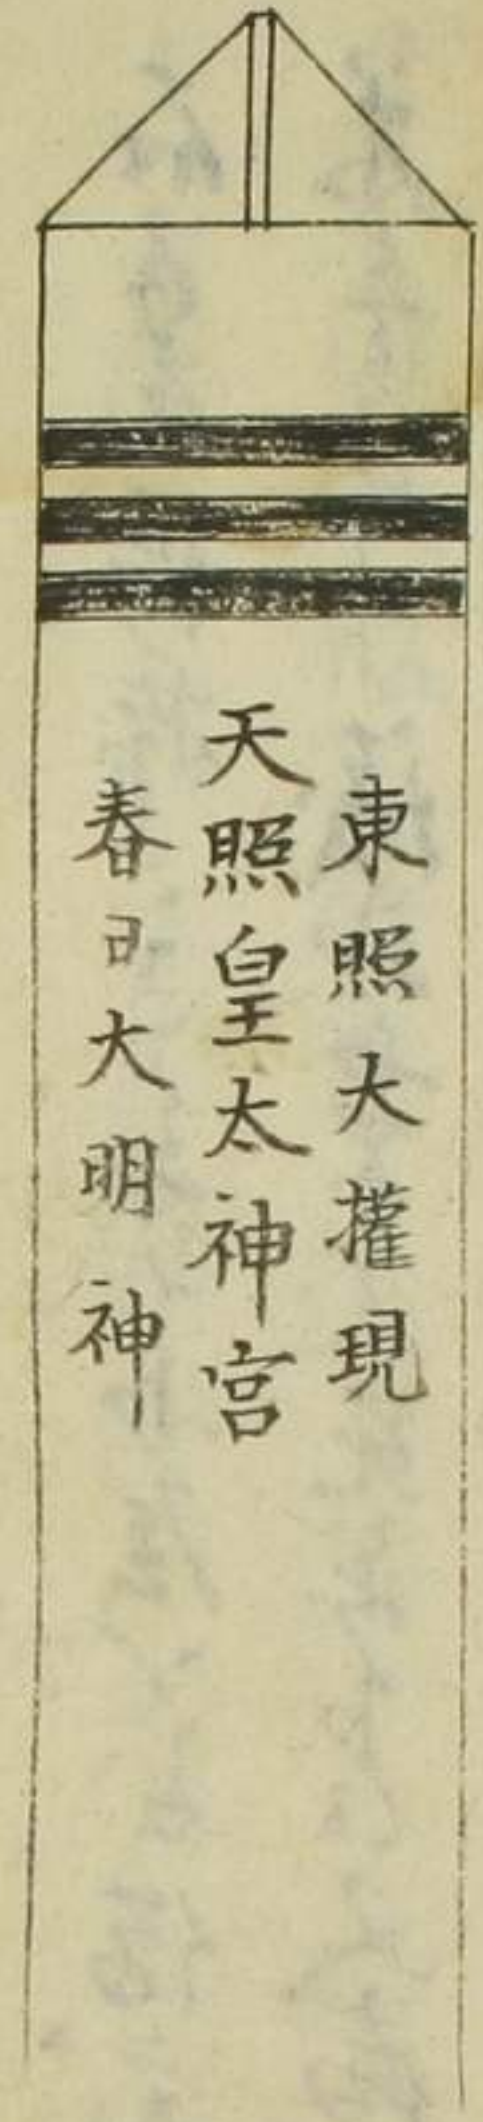 東照大権現
天照皇太神宮
春日大明神